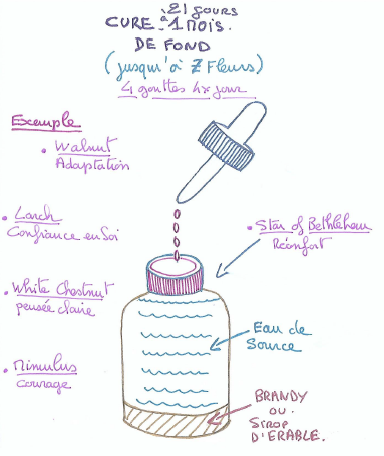 21 jours
CURE à 1 MOIS.
DE FOND
(jusqu'à 7 Fleurs)
4 gouttes 4x jour
Exemple
• Walnut
Adaptation
• Larch
Confiance en Soi
• Star of Bethlehem
Réconfort
• White Chestnut
pensée claire
Eau de
Source
• Mimulus
Courage
BRANDY
OU
SIROP
D'ERABLE.